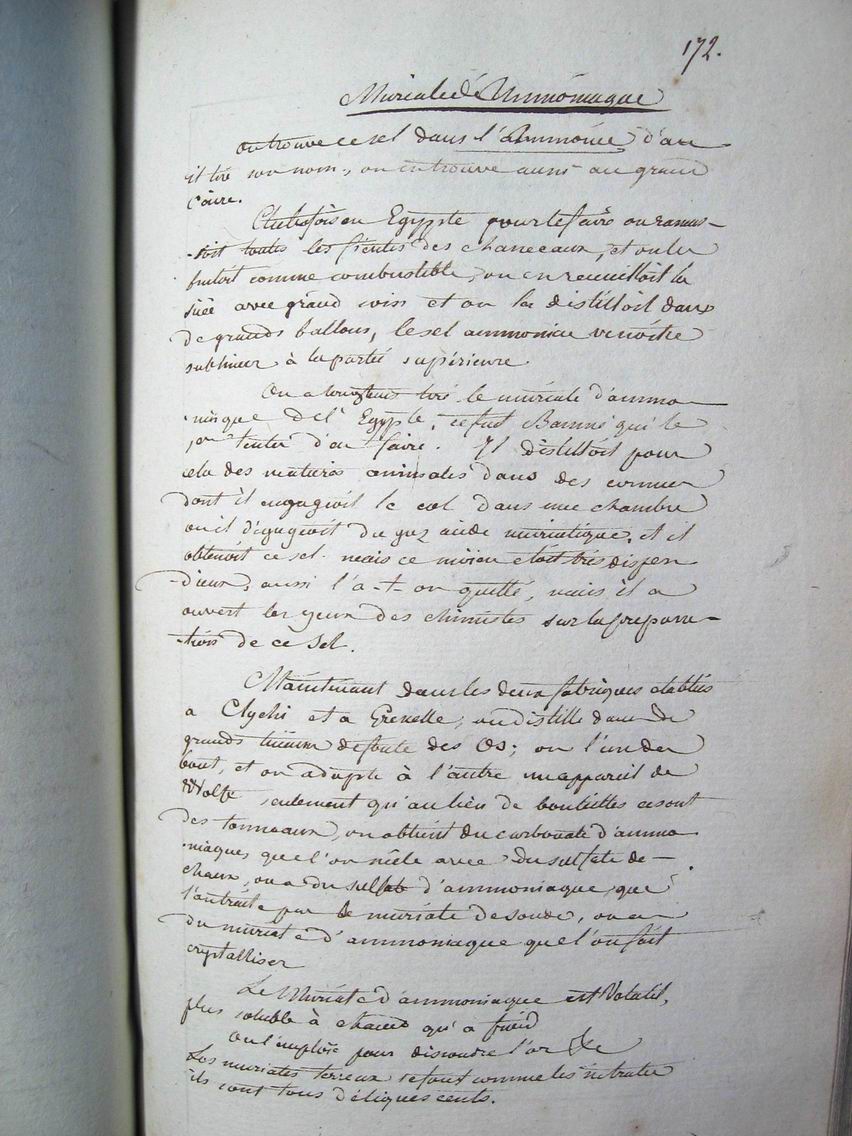 172.
Muriate d'Ammoniaque
on trouve ce sel dans l'Ammonie d'ou
il tire son nom, on en trouve aussi au grand
Caire.
Autrefois en Egypte pour le faire on ramas-
-soit toutes les fientes des chameaux, et on les
bruloit comme combustible, on en recueilloit la
suie avec grand soin et on la distilloit dans
de grands ballons, le sel ammoniac venoit se
sublimer à la partie supérieure
On a longtems tiré le muriate d'ammo-
-niaque de l'Egypte, ce fut Baumé qui le
1er tenta d'en faire. Il distilloit pour
cela des matieres animales dans des cornues
dont il engageoit le col dans une chambre
ou il dégageoit du gaz acide muriatique, et il
obtenoit ce sel. mais ce moien etoit très dispen
-dieux, aussi l'a-t-on quitté, mais il a
ouvert les yeux des chimistes sur la prepara-
-tion de ce Sel.
Maintenant dans les deux fabriques etablies
a Clychi et a Grenelle, on distille dans de
grands tuiaux de fonte des Os; on l'un des
bout, et on adapte à l'autre un appareil de
Wolfe seulement qu'au lieu de bouteilles ce sont
des tonneaux, on obtient du carbonate d'ammo
-niaque, que l'on mêle avec du sulfate de
chaux, on a du sulfate d'ammoniaque que
l'on traite par le muriate de soude, on a
du muriate d'ammoniaque que l'on fait
crystalliser
Le Muriate d'ammoniaque est Volatil,
plus soluble à chaud qu'a froid
On l'emploie pour dissoudre l'or &c
Les muriates terreux se font comme les nitrates
ils sont tous déliquescents.